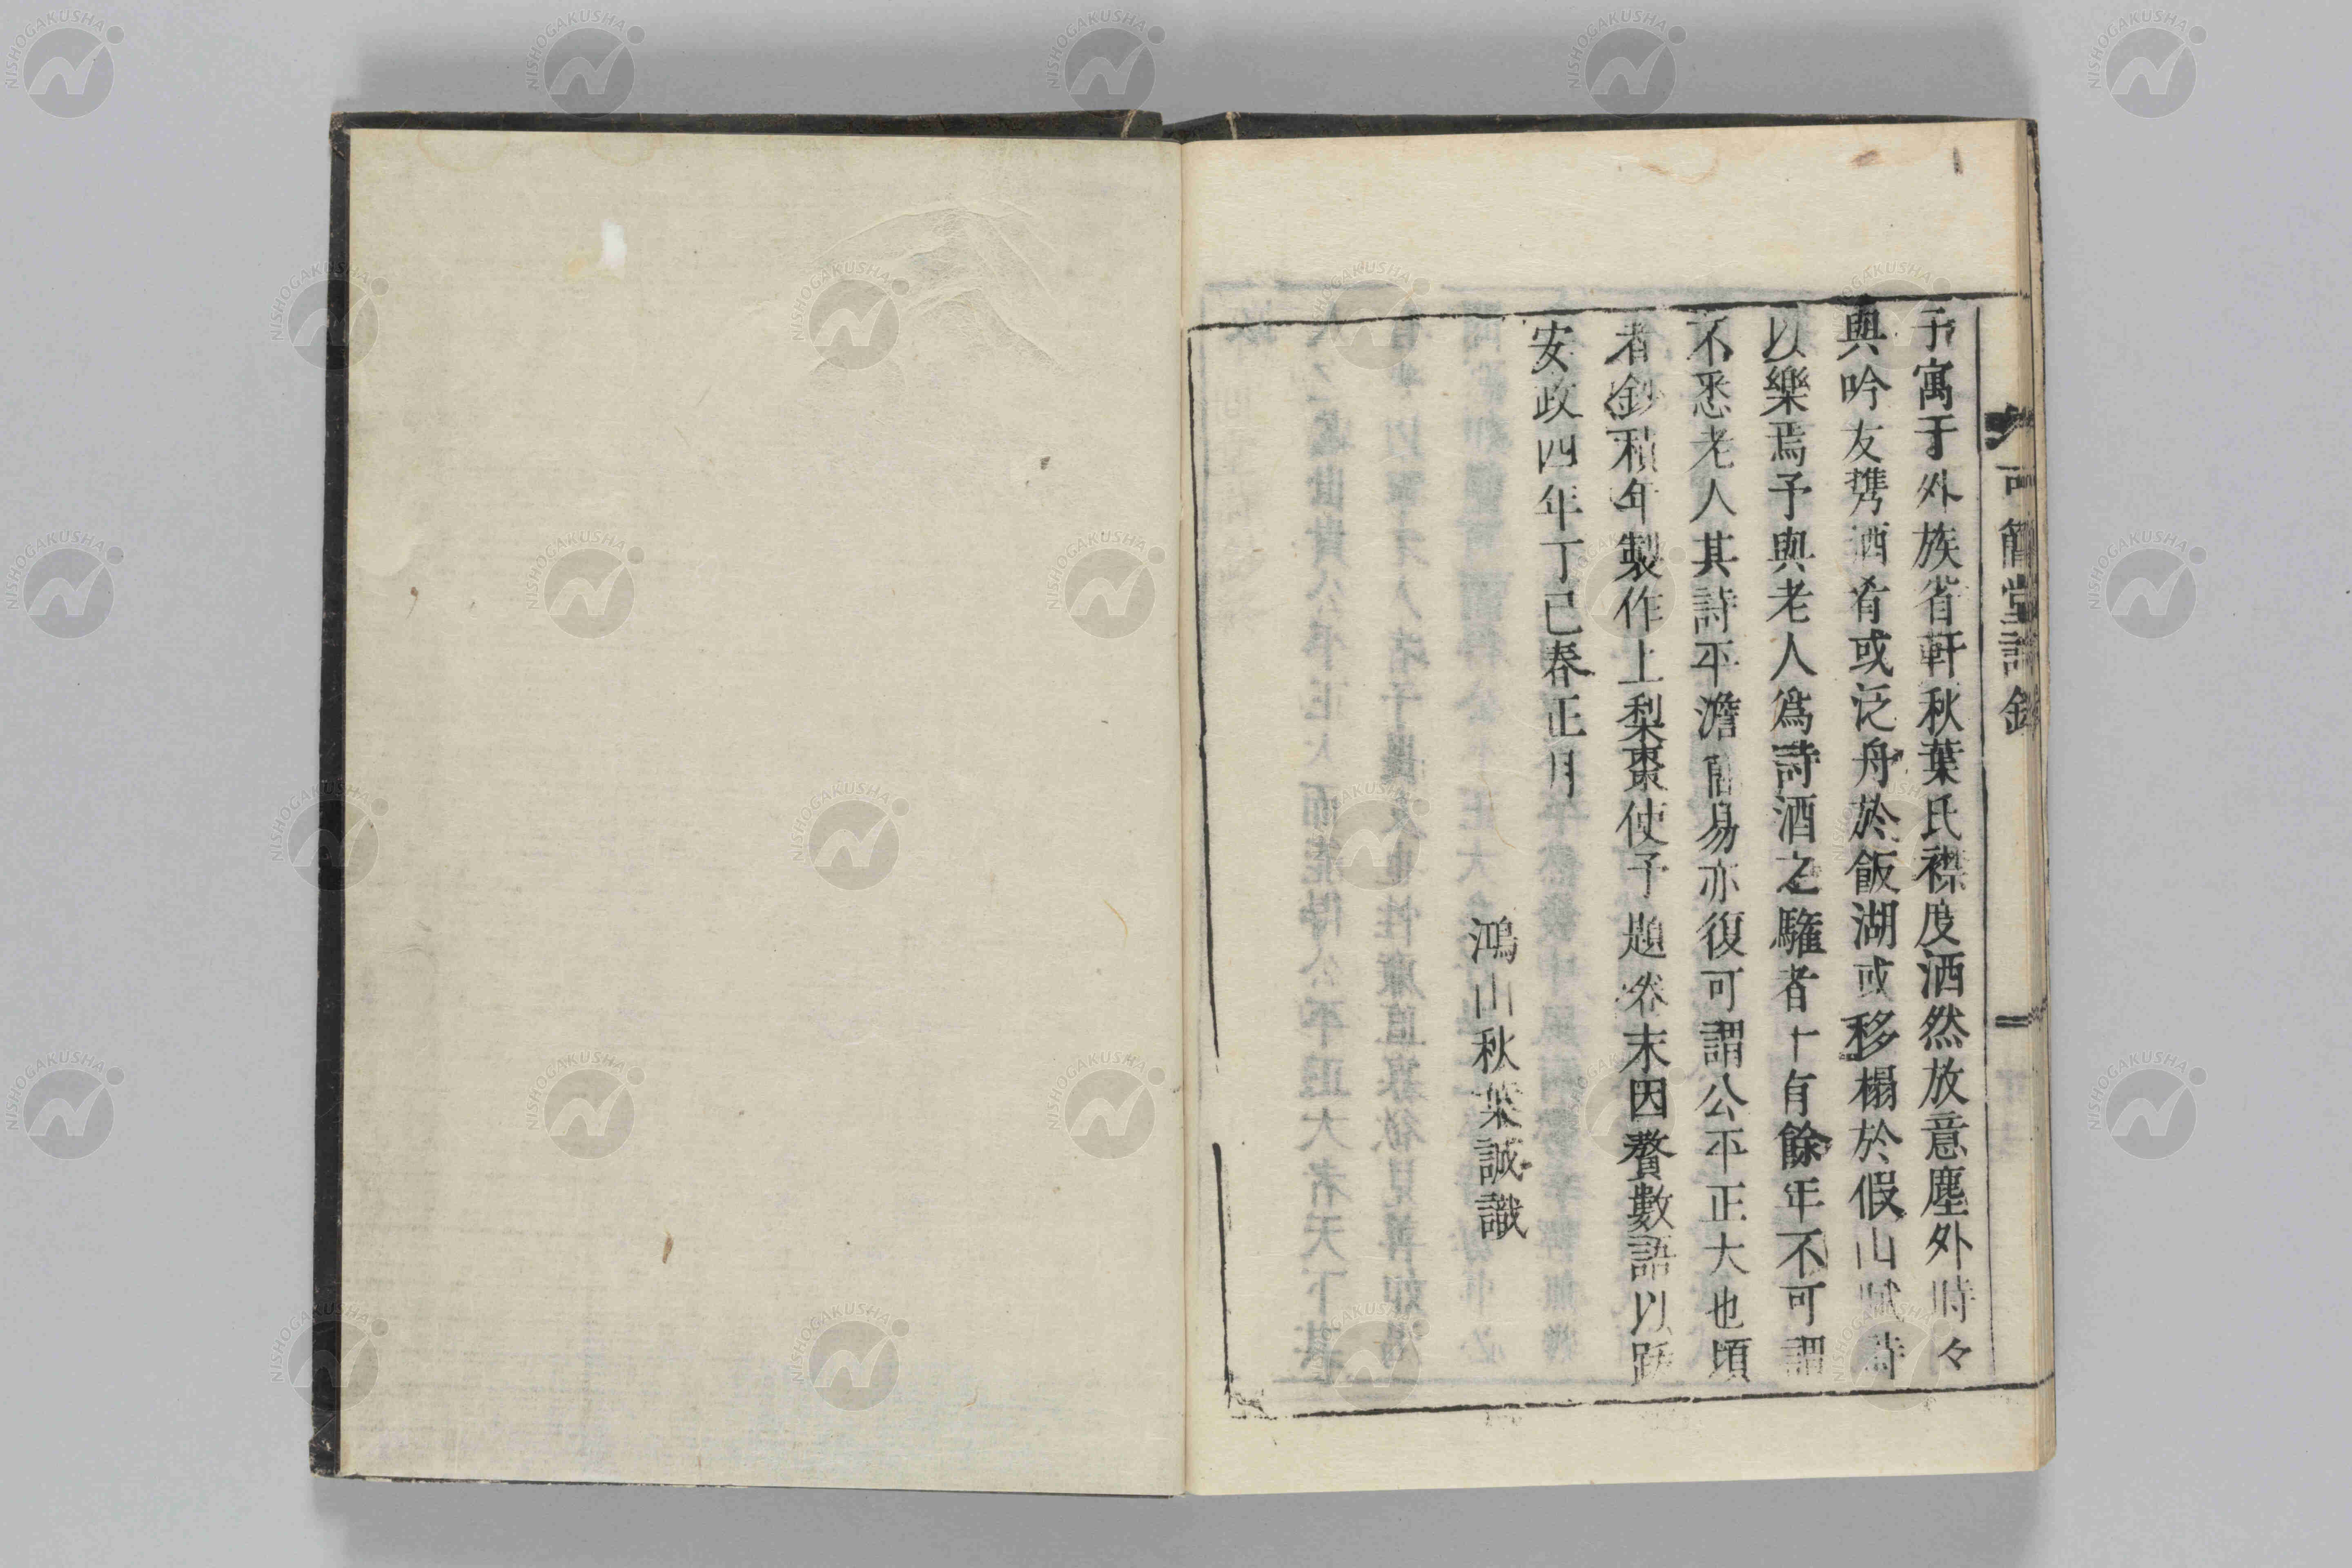 可簡堂詩鈔
于寓于外族省軒秋葉氏襟度洒然放意塵外時々
與吟友携酒肴或泛舟於飯湖或移榻於假山賦詩
以樂焉予與老人爲詩酒之驩者十有餘年不可謂
不悉老人其詩平澹簡易亦復可謂公平正大也頃
者鈔積年製作上梨棗使予題卷末因贅數語以跋
安政四年丁巳春正月
鴻山秋葉誠識
NISHOGAKUSHA